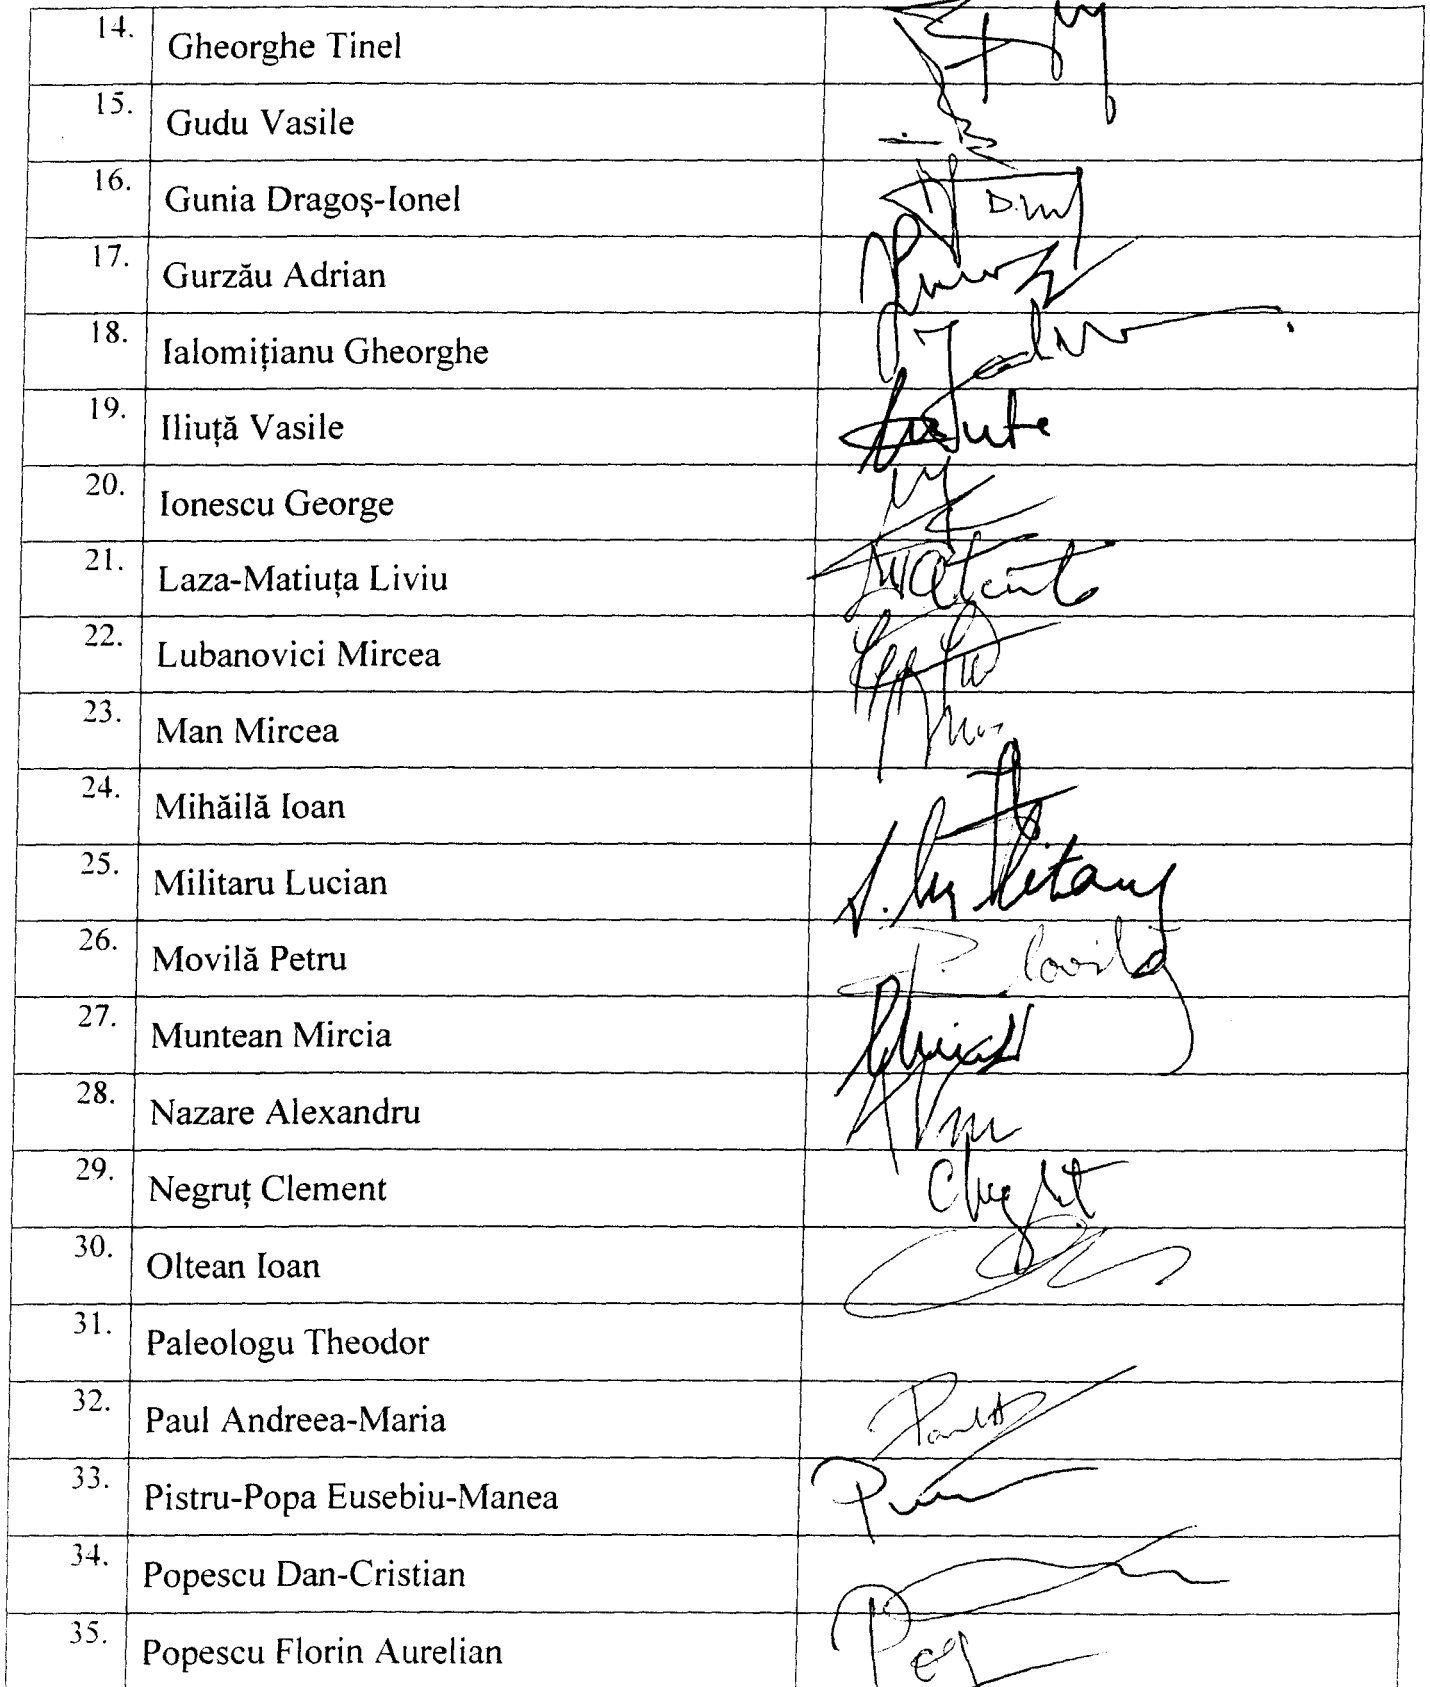 14. Gheorghe Tinel
15. Gudu Vasile
16. Gunia Dragoş-Ionel
17. Gurzău Adrian
18. Ialomiţianu Gheorghe
19. Iliuţă Vasile
20. Ionescu George
21. Laza-Matiuţa Liviu
22. Lubanovici Mircea
23. Man Mircea
24. Mihăilă Ioan
25. Militaru Lucian
26. Movilă Petru
27. Muntean Mircia
28. Nazare Alexandru
29. Negruţ Clement
30. Oltean Ioan
31. Paleologu Theodor
32. Paul Andreea-Maria
33. Pistru-Popa Eusebiu-Manea
34. Popescu Dan-Cristian
35. Popescu Florin Aurelian